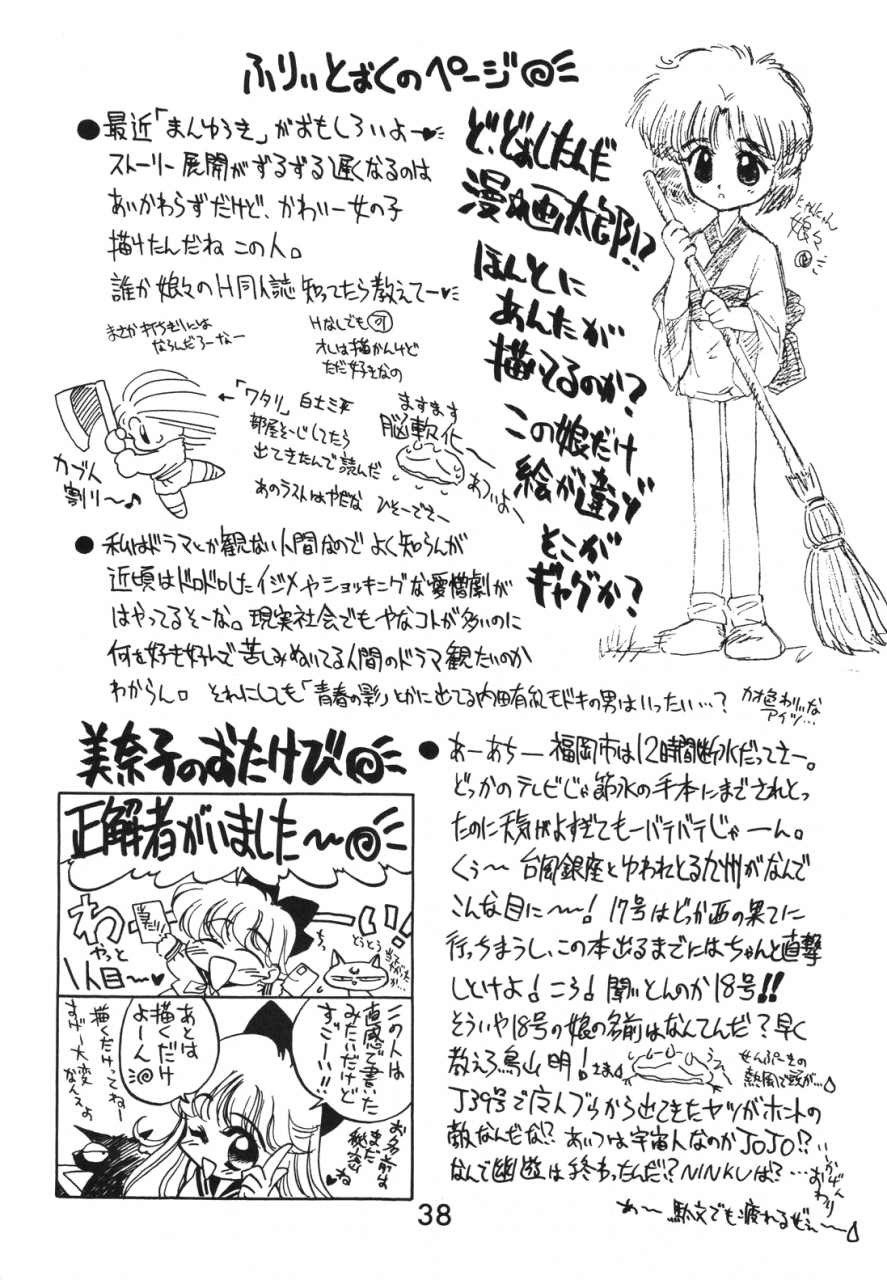 ふりぃとぼくのページ
●最近「まんゆうき」がおもしろいよー♥
ストーリー展開がずるずる遅くなるのは
あいかわらずだけど、かわいー女の子
描けたんだね この人。
誰か娘々のH同人誌知ってたら教えてー♥
まさか打ちきりには
ならんだろーなー
Hなしでも可
オレは描かんけど
ただ好きなの
ど、どおしたんだ
漫☆画太郎!?
ほんとに
あんたが
描いてるのか?
この娘だけ
絵が違うゾ
そこが
ギャグか?
にゃんにゃん
娘々
カブト
割り〜♪
←「ワタリ」白土三平
部屋そーじしてたら
出てきたんで読んだ
あのラストはやだな
ひそーでさー
ますます
脳軟化
あついよ〜
●私はドラマとか観ない人間なのでよく知らんが
近頃はドロドロしたイジメやショッキングな愛憎劇が
はやってるそーな。現実社会でもやなコトが多いのに
何を好き好んで苦しみぬいてる人間のドラマ観たいのか
わからん。それにしても「青春の影」とかに出てる内田有紀モドキの男はいったい…?
カオ色わりぃな
アイツ…
美奈子のおたけび
正解者がいました〜
わーい!
やっと
1人目〜♥
当たり
とうとう
この人は
直感で書いた
みたいだけど
すごーい!!
お名前は
まだ
秘密
ね
あとは
描くだけ
よーん
描くだけってねー
すげー大変
なんスよ
●あーあちー 福岡市は12時間断水だってさー。
どっかのテレビじゃ節水の手本にまでされとっ
たのに天気がよすぎてもーバテバテじゃーん。
くぅ〜 台風銀座とゆわれとる九州がなんで
こんな目に〜! 17号はどっか西の果てに
行っちまうし、この本出るまでにはちゃんと直撃
しとけよ!こら!聞いとんのか18号!!
そういや18号の娘の名前はなんてんだ?早く
教えろ鳥山明!さま
せんぷーきの
熱風で頭が…
J39号で広人ブらから出てきたヤツがホントの
敵なんだな!? あいつは宇宙人なのかJOJO!?
なんで幽遊は終わったんだ!? NINKUは?…
いかげん
おわり
あ〜 駄文でも疲れるぜぇ〜
38